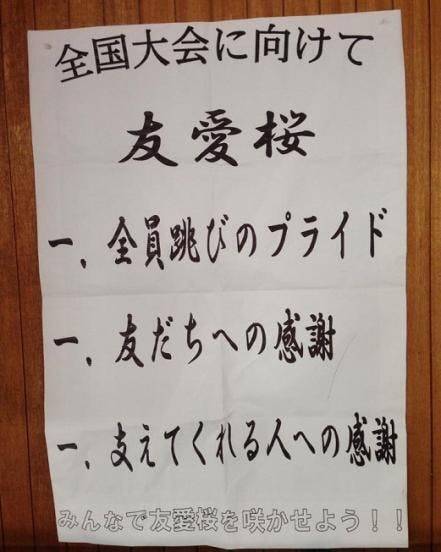 全国大会に向けて
友愛桜
一、全員跳びのプライド
一、友だちへの感謝
一、支えてくれる人への感謝
みんなで友愛桜を咲かせよう！！